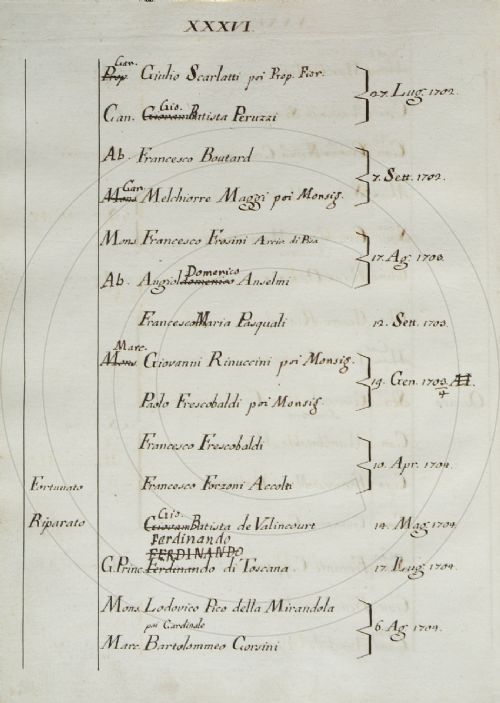 XXXVI.
Can.
Prop Giulio Scarlatti poi Prop. Fior.
27. Lug. 1702.
Gio.
Can. Giovam Batista Peruzzi
Ab. Francesco Boutard
7. Sett. 1702.
Can.
Mons Melchiorre Maggi poi Monsig.
Mons Francesco Frosini Arciv. di Pisa
17. Ag. 1703.
Domenico
Ab. Angiol domenico Anselmi
Francesco Maria Pasquali 12. Sett. 1703.
Marc.
Mons. Giovanni Rinuccini poi Monsig.
19. Gen. 1703.
4
Paolo Frescobaldi poi Monsig.
Francesco Frescobaldi
10. Apr. 1704.
Fortunato Francesco Forzoni Accolti
Gio.
Riparato Giovam Batista de Valincourt 14. Mag. 1704.
Ferdinando
FERDINANDO
G. Princ. Ferdinando di Toscana 17. Lug. 1704.
Mons. Lodovico Pico della Mirandola
poi Cardinale
6. Ag. 1704.
Marc. Bartolommeo Corsini